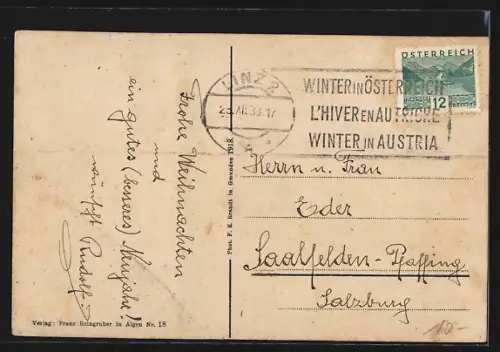 Frohe Weihnachten
und
ein gutes (besseres) Neujahr!
wünscht Rudolf.
Verlag: Franz Reingruber in Aigen Nr. 18
Phot. F. E. Brandt in Gmunden 1918.
LINZ 2
23.XII.33.17
WINTER IN ÖSTERREICH
L'HIVER EN AUTRICHE
WINTER IN AUSTRIA
ÖSTERREICH
12
Herrn u. Frau
Eder
Saalfelden-Pfaffing
Salzburg
10.-